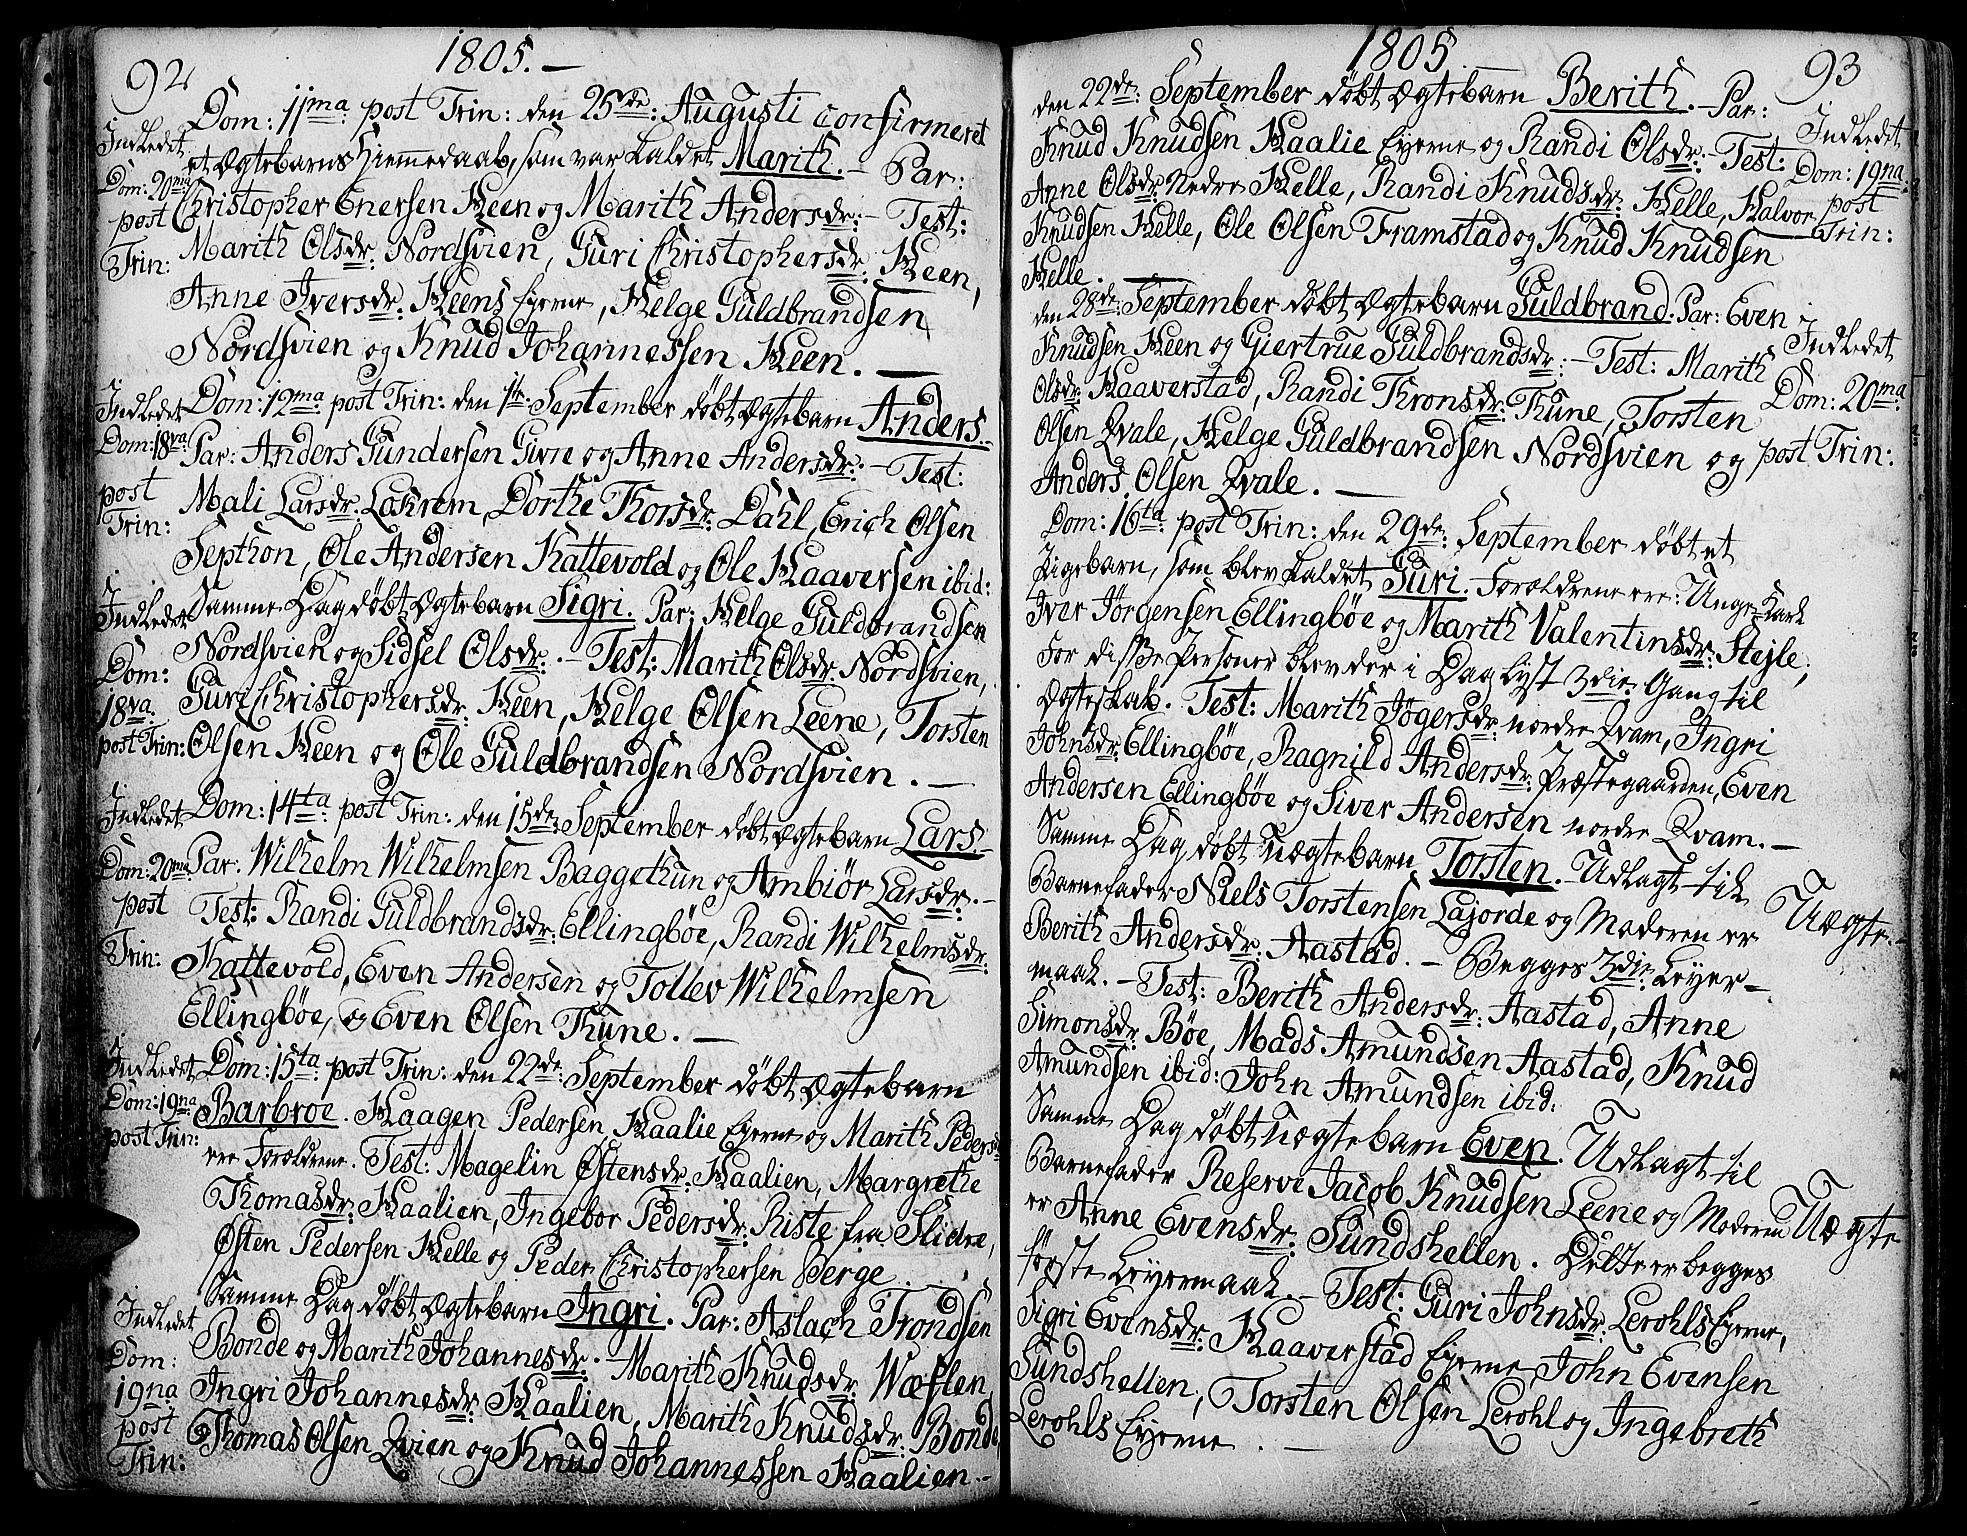 92
1805.—
Dom: 11ma post Trin: den 25de: Augusti confirmeret
et Ægtebarns Hiemmedaab, som var kaldet Marith.— Par:
Christopher Enersen Heen og Marith Andersdr:— Test:
Marith Olsdr: Nordsvien, Guri Christophersdr: Heen,
Anne Iversdr: Heens Eyerne, Helge Guldbrandsen
Nordsvien og Knud Johannessen Heen.—
Indledet
Dom: 20ma
post
Trin:
Dom: 12ma post Trin: den 1te September døbt Ægtebarn Anders.—
Par: Anders Gundersen Givre og Anne Andersdr:— Test:
Mali Larsdr: Lökrem, Dorthe Thorsdr: Dahl, Erich Olsen
Septhon, Ole Andersen Kattevold og Ole Haaversen ibid:
Indledet
Dom: 18va
post
Trin:
Samme Dag døbt Ægtebarn Sigri. Par: Helge Guldbrandsen
Nordsvien og Sidsel Olsdr:.— Test: Marith Olsdr: Nordsvien,
Guri Christophersdr: Heen, Helge Olsen Leene, Torsten
Olsen Heen og Ole Guldbrandsen Nordsvien.—
Indledet
Dom:
18va
post Trin:
Dom: 14ta post Trin: den 15de: September døbt Ægtebarn Lars.—
Par. Wilhelm Wilhelmsen Baggethun og Ambiör Larsdr:.—
Test: Randi Guldbrandsdr: Ellingbøe, Randi Wilhelmsdr:
Kattevold, Even Andersen og Tollev Wilhelmsen
Ellingbøe, og Even Olsen Thune.—
Indledet
Dom: 20ma
post
Trin:
Dom: 15ta post Trin: den 22de: September døbt Ægtebarn
Barbroe. Haagen Pedersen Haalie Eyerne og Marith Pedersdr:
ere Forældrene. Test: Magelin Østensdr: Haalien, Margrethe
Thomasdr: Haalien, Ingebor Pedersdr: Riste fra Slidre,
Østen Pedersen Helle og Peder Christophersen Berge.
Indledet
Dom: 19na
post Trin:
Samme Dag døbt Ægtebarn Ingri. Par: Aslach Trondsen
Bonde og Marith Johannesdr:.— Marith Knudsdr: Wæflen,
Ingri Johannesdr: Haalien, Marith Knudsdr: Bonde
Thomas Olsen Qvien og Knud Johannessen Haalien.—
Indledet
Dom:
19na
post
Trin:
1805
93
den 22de: September døbt Ægtebarn Berith.— Par:
Knud Knudsen Haalie Eyerne og Randi Olsdr:— Test:
Anne Olsdr: Nedre Helle, Randi Knudsdr: Helle, Halvor
Knudsen Helle, Ole Olsen Framstad og Knud Knudsen
Helle.—
Indledet
Dom: 19na
post
Trin:
den 28de: September døbt Ægtebarn Guldbrand. Par: Even
Knudsen Heen og Giertrue Guldbrandsdr:— Test: Marith
Olsdr: Haaverstad, Randi Thronsdr: Thune, Torsten
Olsen Qvale, Helge Guldbrandsen Nordsvien og
Anders Olsen Qvale.—
Indledet
Dom: 20ma
post Trin:
Dom: 16ta post Trin: den 29de: September døbt et
Pigebarn, som blev kaldet Guri. Forældrene ere: Unge Karl
Iver Jörgensen Ellingbøe og Marith Valentinsdr: Stejle;
For disse Personer blev der i Dag lyst 3die Gang til
Ægteskab. Test: Marith Jögersdr: nordre Qvam, Ingri
Johnsdr: Ellingbøe, Ragnild Andersdr: Præstegaarden, Even
Andersen Ellingbøe og Siver Andersen nordre Qvam.—
Samme Dag døbt uægtebarn Torsten.— Udlagt til
Barnefader Niels Torstensen Lajorde og Moderen er
Berith Andersdr: Aastad.— Begges 3die Leyer-
maal.— Test: Berith Andersdr: Aastad, Anne
Simonsdr: Bøe, Mads Amundsen Aastad, Knud
Amundsen ibid: John Amundsen ibid:
Uægte.—
Samme Dag døbt uægtebarn Even. Udlagt til
Barnefader Reserve Jacob Knudsen Leene og Moderen
er Anne Evensdr: Sundshellen. Dette er begges
første Leyermaal.— Test: Guri Johnsdr: Lerohls Eyerne,
Sigri Evensdr: Haaverstad Eyerne, John Evensen
Sundshellen, Torsten Olsen Lerohl og Ingebreth
Lerohls Eyerne.—
Uægte